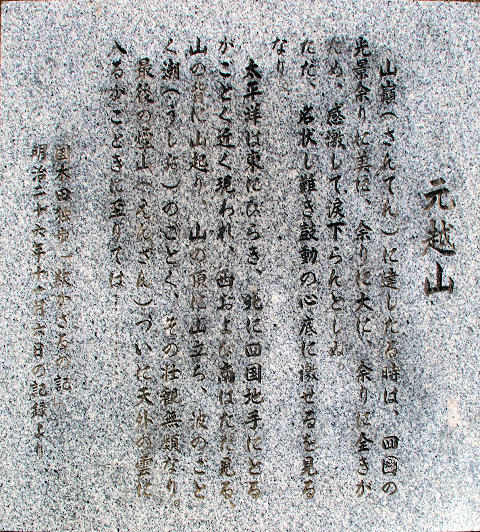 元越山
山巓(さんてん)に達したる時は、四圍の
光景余りに美に、余りに大に、余りに全きが
ため、感激して涙下らんとしぬ。
ただ、名状し難き鼓動の心底に激せるを見る
なり
太平洋は東にひらき、北に四国地手にとる
がごとく近く現われ、西および南はただ見る、
山の背に山起り、山の頂に山立ち、波のごと
く潮(うしお)のごとく、その壮観無類なり。
最後の煙山(えんざん)ついに天外の雲に
入るがごときに至りては…
国木田独歩「欺かざるの記」
明治二十六年十一月六日の記録より